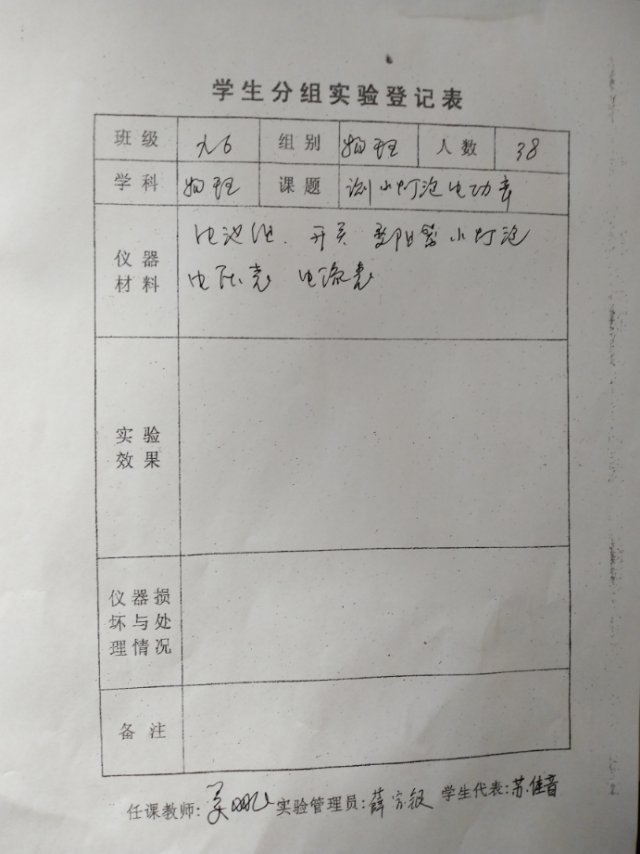 学生分组实验登记表
班级 九6 组别 物理 人数 38
学科 物理 课题 测小灯泡电功率
仪器材料 电池组、开关 变阻器 小灯泡
电压表 电流表
实验效果
仪器损坏与处理情况
备注
任课教师: 实验管理员: 薛 学生代表: 苏佳音